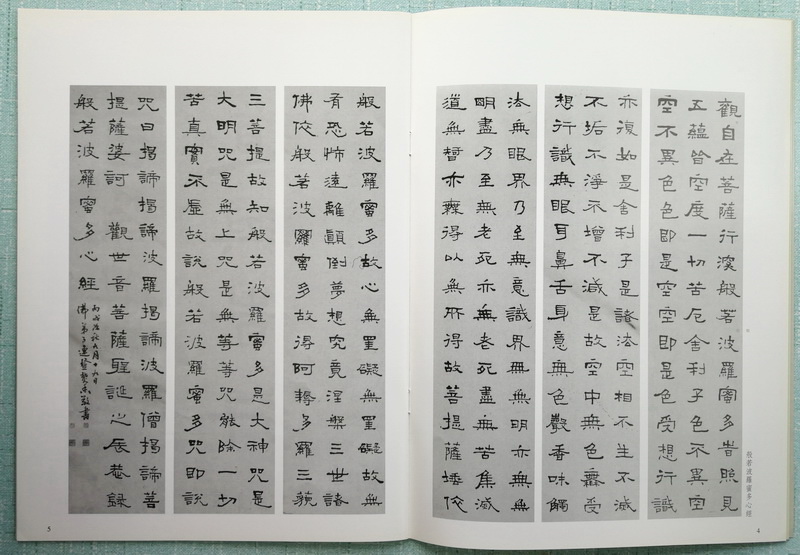 觀自在菩薩行深般若波羅蜜多時照見
五蘊皆空度一切苦厄舍利子色不異空
空不異色色即是空空即是色受想行識
亦復如是舍利子是諸法空相不生不滅
不垢不淨不增不減是故空中無色無受
想行識無眼耳鼻舌身意無色聲香味觸
法無眼界乃至無意識界無無明亦無無
明盡乃至無老死亦無老死盡無苦集滅
道無智亦無得以無所得故菩提薩埵依
般若波羅蜜多心經
4
般若波羅蜜多故心無罣礙無罣礙故無
有恐怖遠離顛倒夢想究竟涅槃三世諸
佛依般若波羅蜜多故得阿耨多羅三藐
三菩提故知般若波羅蜜多是大神咒是
大明咒是無上咒是無等等咒能除一切
苦真實不虛故說般若波羅蜜多咒即說
咒曰揭諦揭諦波羅揭諦波羅僧揭諦菩
提薩婆訶 觀世音菩薩聖誕之辰恭錄
般若波羅蜜多心經
六月十九日
佛弟子 敬書
5